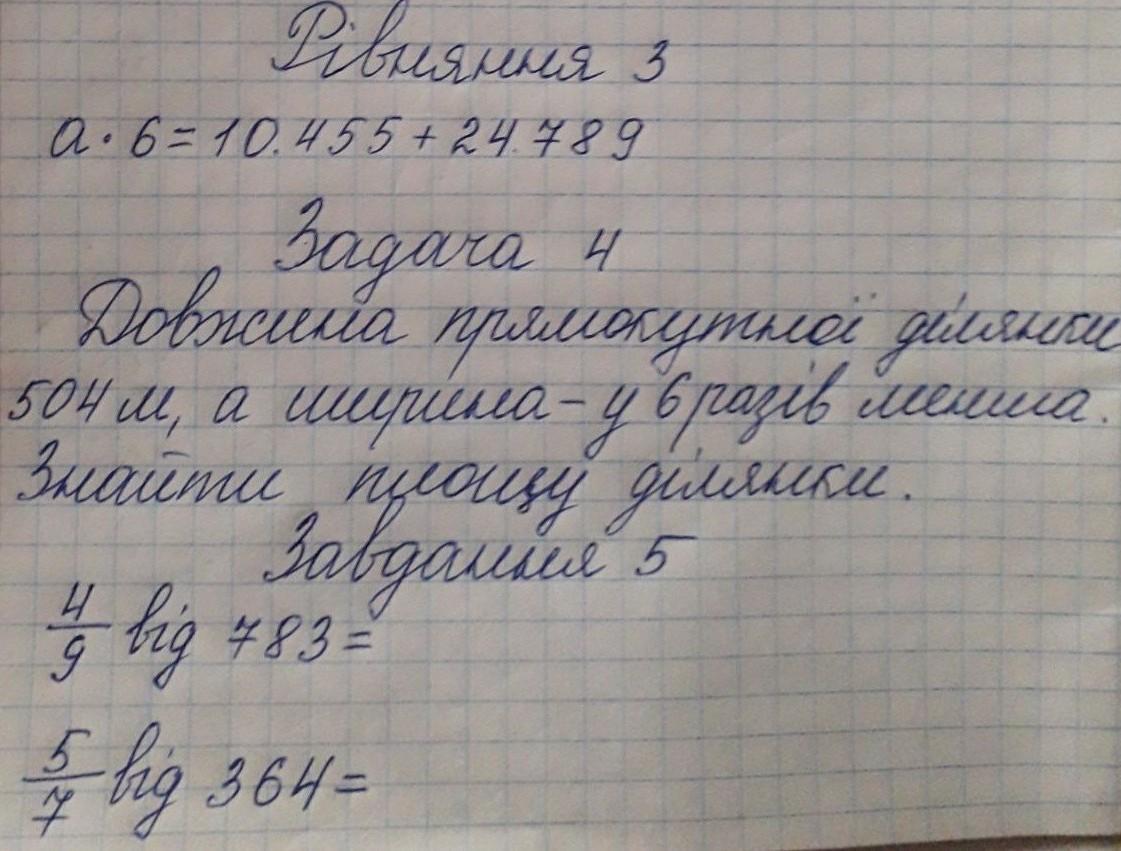 Рівняння 3
a · 6 = 10.455 + 24.789
Задача 4
Довжина прямокутної ділянки
504 м, а ширина – у 6 разів менша.
Знайти площу ділянки.
Завдання 5
4/9 від 783 =
5/7 від 364 =